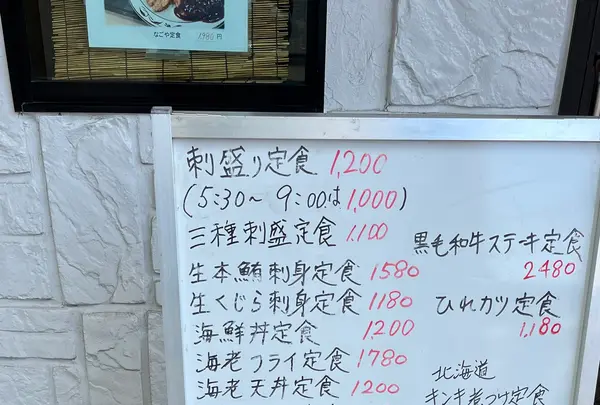 なごや定食 1980円
刺盛り定食 1,200
(5:30〜9:00は1,000)
三種刺盛定食 1,100
生本鮪刺身定食 1580
生くじら刺身定食 1180
海鮮丼定食 1,200
海老フライ定食 1780
海老天丼定食 1200
黒毛和牛ステーキ定食
2480
ひれカツ定食
1,180
北海道
キンキ煮つけ定食